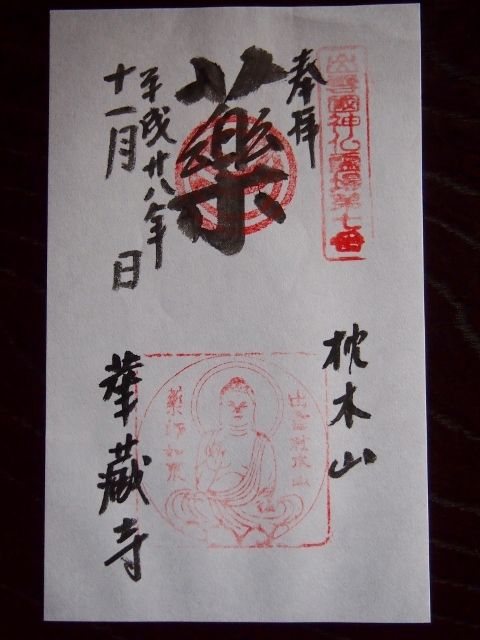 出雲國神仏霊場第七番
奉拝
薬
平成廿八年
十一月 日
枕木山
華蔵寺
出雲國枕木山
薬師如来